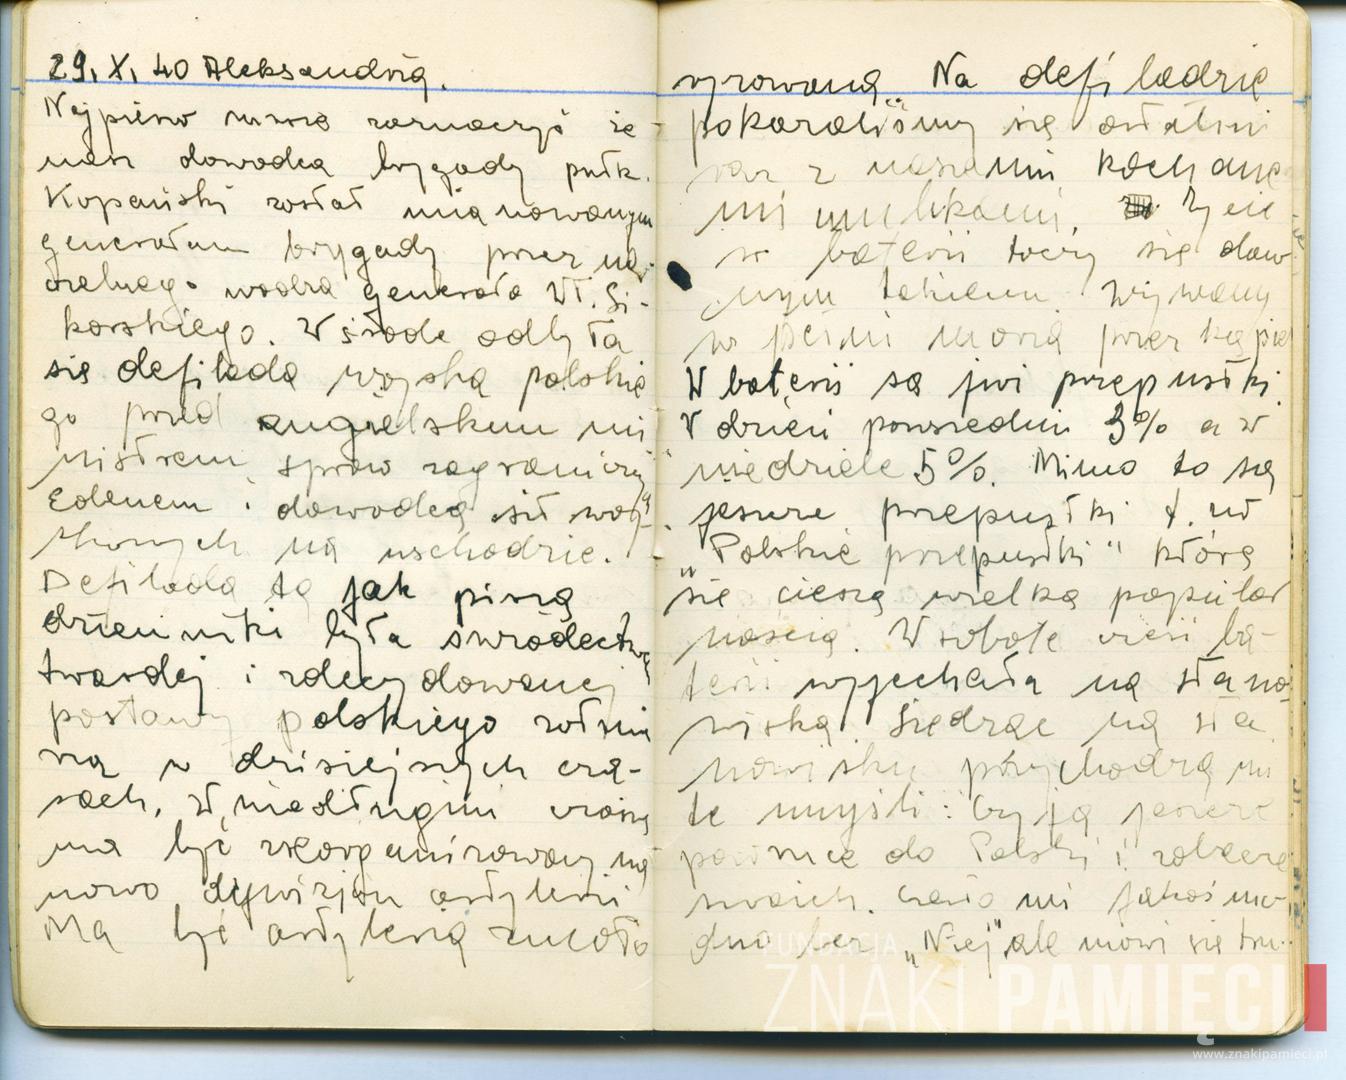 29. X. 40 Aleksandria.
Najpierw muszę zaznaczyć że
nasz dowodca brygady pułk.
Kopański został mianowanym
generałem brygady przez na-
czelnego wodza generała Wł. Si-
korskiego. W środe odbyła
się defilada wojska polskie
go przed angielskim mi
nistrem spraw zagranicz
Edenem i dowodcą sił woj-
skowych na wschodzie.
Defilada ta jak piszą
dzienniki była swiadectwe
twardej i zdecydowanej
postawy polskiego zołnie
rza w dzisiejszych cza-
sach. W niedługim czasie
ma być zreorganizowany na
nowo dywizjon artylerii
Ma być artyleria zmoto
ryzowana. Na defiladzie
pokazaliśmy się ostatni
raz z naszymi kochane
mi mulikami. Życie
w baterii toczy się daw
nym
w pełni morza przez kąpiel
W baterii są już przepustki.
W dzień powszedni 3% a w
niedziele 5%. Mimo to są
jeszcze przepustki t. zw
„Polskie przepustki" które
się cieszą wielką popular
noscią. W sobote cześć ba-
terii wyjechała na stano
wiska. Siedząc na sta
nowisku przychodzą mi
te myśli: czy ja jeszcze
powrócę do Polski i zobaczę
swoich. Ciężo mi jakoś
bez „Niej", ale mówi się tru-
FUNDACJA
ZNAKI PAMIĘCI
www.znakipamieci.pl